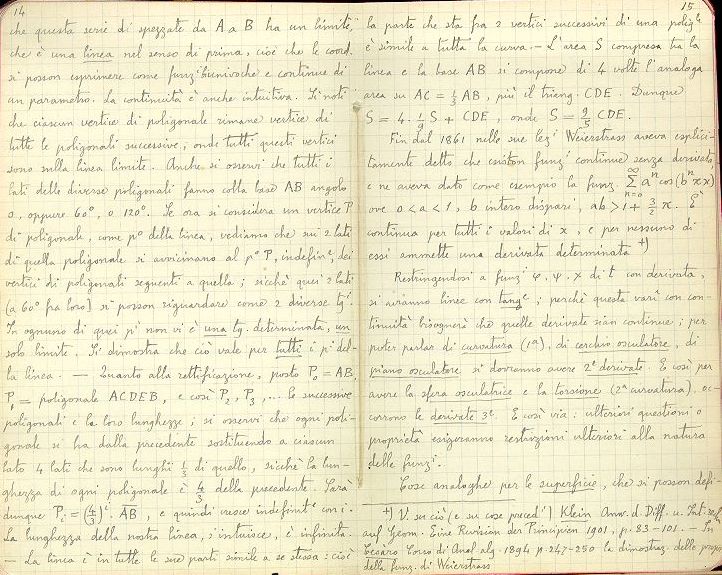 14
che questa serie di spezzate da A a B ha un limite,
che è una linea nel senso di prima, cioè che le coord.
si posson esprimere come funz.i biunivoche e continue di
un parametro. La continuità è anche intuitiva. Si noti
che ciascun vertice di poligonale rimane vertice di
tutte le poligonali successive, onde tutti questi vertici
sono sulla linea limite. Anche si osservi che tutti i
lati delle diverse poligonali fanno colla base AB angolo
0, oppure 60°, o 120°. Se ora si considera un vertice P
di poligonale, come p.o della linea, vediamo che sui 2 lati
di quella poligonale si avvicinano al p.o P, indefin.te, dei
vertici di poligonali seguenti a quella; sicchè quei 2 lati
(a 60° fra loro) si posson riguardare come 2 diverse tg.i
In ognuno di quei p.i non vi è una tg. determinata, un
solo limite. Si dimostra che ciò vale per tutti i p.i del-
la linea. — Quanto alla rettificazione, posto P₀ = AB,
P₁ = poligonale ACDEB, e così P₂, P₃, ... le successive
poligonali e la loro lunghezze; si osservi che ogni poli-
gonale si ha dalla precedente sostituendo a ciascun
lato 4 lati che sono lunghi 1/3 di quello, sicchè la lun-
ghezza di ogni poligonale è 4/3 della precedente. Sarà
dunque Pᵢ = (4/3)ⁱ. AB, e quindi cresce indefinit.e con i.
La lunghezza della nostra linea, s'intuisce, è infinita.
— La linea è in tutte le sue parti simile a se stessa: cioè
15
la parte che sta fra 2 vertici successivi di una polig.le
è simile a tutta la curva. — L'area S compresa tra la
linea e la base AB si compone di 4 volte l'analoga
area su AC = 1/3 AB, più il triang. CDE. Dunque
S = 4·1/9 S + CDE, onde S = 9/5 CDE.
Fin dal 1861 nelle sue lez.i Weierstrass aveva esplici-
tamente detto che esiston funz.i continue senza derivata
e ne aveva dato come esempio la funz. ∑ₙ₌₀^∞ aⁿ cos(bⁿπx)
ove 0<a<1, b intero dispari, ab > 1 + 3/2 π. È
continua per tutti i valori di x, e per nessuno di
essi ammette una derivata determinata +)
Restringendosi a funz.i φ, ψ, χ di t con derivata,
si avranno linee con tang.e; perchè questa vari con con-
tinuità bisognerà che quelle derivate sian continue; per
poter parlar di curvatura (1ª), di cerchio osculatore, di
piano osculatore si dovranno avere 2.e derivate. E così per
avere la sfera osculatrice e la torsione (2ª curvatura) oc-
corrono le derivate 3.e. E così via: ulteriori questioni o
proprietà esigeranno restrizioni ulteriori alla natura
delle funz.i.
Cose analoghe per le superficie, che si posson defi-
+) V. su ciò (e su cose preced.i) Klein Anw. d. Diff. u. Int.
auf Geom. Eine Revision der Principien 1901, p. 83-101. — In
Cesaro Corso di Anal. alg. 1894 p. 247-250 la dimostraz. delle
della funz. di Weierstrass